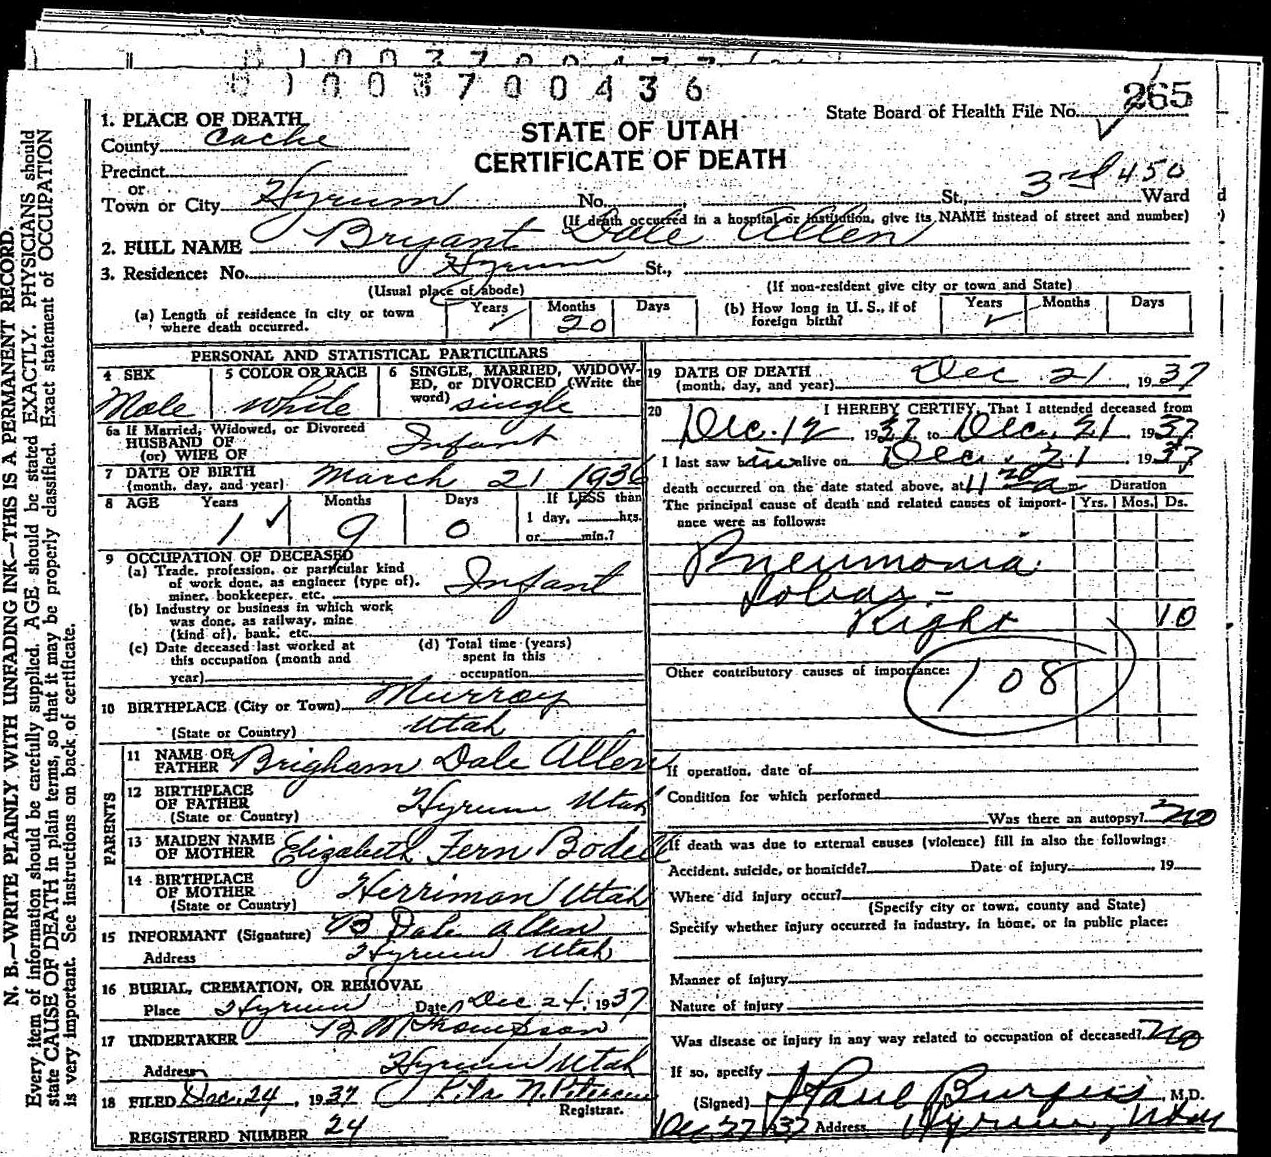 0 1 0 0 3 7 0 0 4 3 6
265
State Board of Health File No.
STATE OF UTAH
CERTIFICATE OF DEATH
1. PLACE OF DEATH
County Cache
Precinct
or
Town or City Hyrum No. St., 3rd 450 Ward
(If death occurred in a hospital or institution, give its NAME instead of street and number)
2. FULL NAME Bryant Dale Allen
3. Residence: No. Hyrum St.,
(Usual place of abode) (If non-resident give city or town and State)
(a) Length of residence in city or town where death occurred. Years ✓ Months 20 Days
(b) How long in U. S., if of foreign birth? Years ✓ Months Days
PERSONAL AND STATISTICAL PARTICULARS
4 SEX Male
5 COLOR OR RACE White
6 SINGLE, MARRIED, WIDOW-
ED, or DIVORCED (Write the
word) single
6a If Married, Widowed, or Divorced
HUSBAND OF
(or) WIFE OF Infant
7 DATE OF BIRTH
(month, day, and year) March 21 1936
8 AGE Years 1 ✓ Months 9 Days 0 If LESS than
1 day, hrs.
or min.?
9 OCCUPATION OF DECEASED
(a) Trade, profession, or particular kind
of work done, as engineer (type of),
miner, bookkeeper, etc. Infant
(b) Industry or business in which work
was done, as railway, mine
(kind of), bank, etc.
(c) Date deceased last worked at
this occupation (month and
year)
(d) Total time (years)
spent in this
occupation
10 BIRTHPLACE (City or Town) Murray
(State or Country) Utah
PARENTS
11 NAME OF
FATHER Brigham Dale Allen
12 BIRTHPLACE
OF FATHER
(State or Country) Hyrum Utah
13 MAIDEN NAME
OF MOTHER Elizabeth Fern Bodell
14 BIRTHPLACE
OF MOTHER
(State or Country) Herriman Utah
15 INFORMANT (Signature) B Dale Allen
Address Hyrum Utah
16 BURIAL, CREMATION, OR REMOVAL
Place Hyrum Date Dec 24, 1937
17 UNDERTAKER B. M Thompson
Address Hyrum Utah
18 FILED Dec. 24, 1937 N. Petersen
Registrar.
REGISTERED NUMBER 24
19 DATE OF DEATH
(month, day, and year) Dec 21, 1937
20 I HEREBY CERTIFY, That I attended deceased from
Dec. 12 1937 to Dec. 21 1937
I last saw him alive on Dec. 21 1937
death occurred on the date stated above, at 11 a m. Duration
The principal cause of death and related causes of import-
ance were as follows: Yrs. Mos. Ds.
Pneumonia
Lobar -
Right 10
Other contributory causes of importance:
108
If operation, date of
Condition for which performed
Was there an autopsy? no
If death was due to external causes (violence) fill in also the following:
Accident, suicide, or homicide? Date of injury , 19
Where did injury occur?
(Specify city or town, county and State)
Specify whether injury occurred in industry, in home, or in public place:
Manner of injury
Nature of injury
Was disease or injury in any way related to occupation of deceased? no
If so, specify
(Signed) J Paul Burgess, M.D.
Dec. 27 1937 Address Hyrum, Utah
N. B.—WRITE PLAINLY WITH UNFADING INK—THIS IS A PERMANENT RECORD.
Every item of information should be carefully supplied. AGE should be stated EXACTLY. PHYSICIANS should
state CAUSE OF DEATH in plain terms, so that it may be properly classified. Exact statement of OCCUPATION
is very important. See instructions on back of certificate.